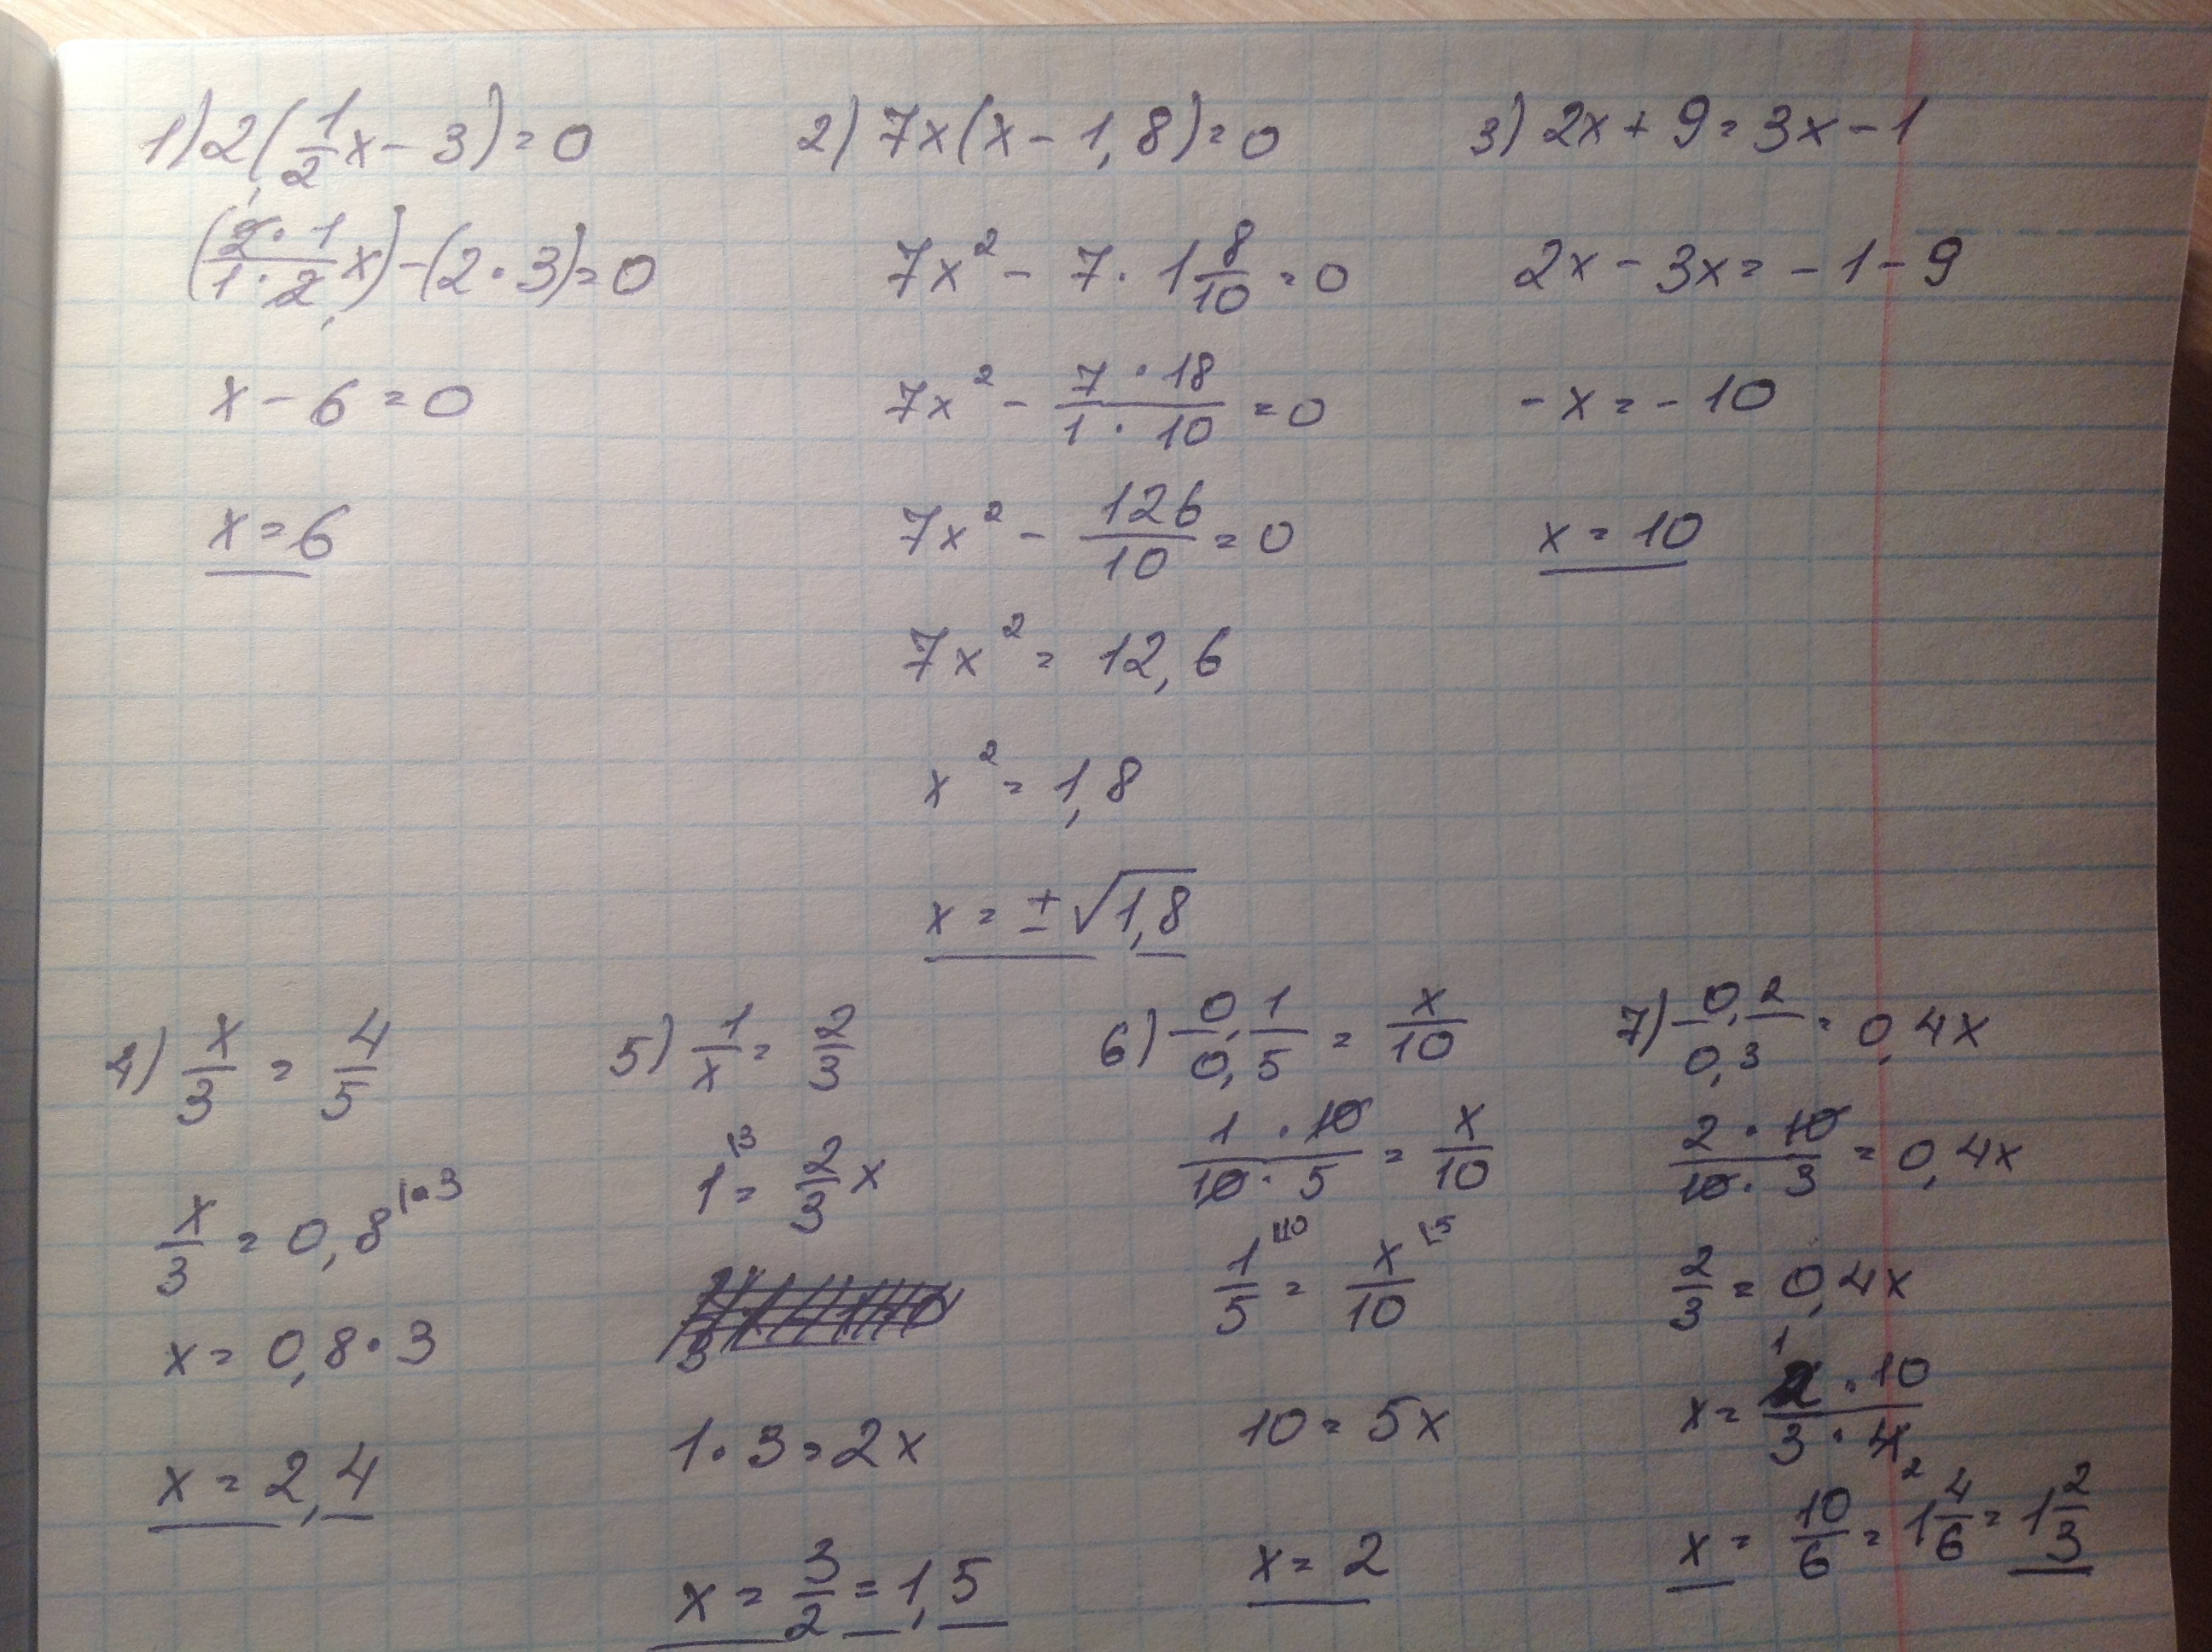 1) 2(1/2x - 3) = 0
(2·1/1·2 x) - (2·3) = 0
x - 6 = 0
x = 6
2) 7x(x - 1,8) = 0
7x² - 7·1 8/10 = 0
7x² - 7·18/1·10 = 0
7x² - 126/10 = 0
7x² = 12,6
x² = 1,8
x = ±√1,8
3) 2x + 9 = 3x - 1
2x - 3x = -1 - 9
-x = -10
x = 10
4) x/3 = 4/5
x/3 = 0,8 |·3
x = 0,8·3
x = 2,4
5) 1/x = 2/3
1 |3 = 2/3 x
1·3 = 2x
x = 3/2 = 1,5
6) 0,1/0,5 = x/10
1·10/10·5 = x/10
1/5 |10 = x/10 |5
10 = 5x
x = 2
7) 0,2/0,3 = 0,4x
2·10/10·3 = 0,4x
2/3 = 0,4x
x = 2 1·10/3·4 2
x = 10/6 = 1 4/6 = 1 2/3